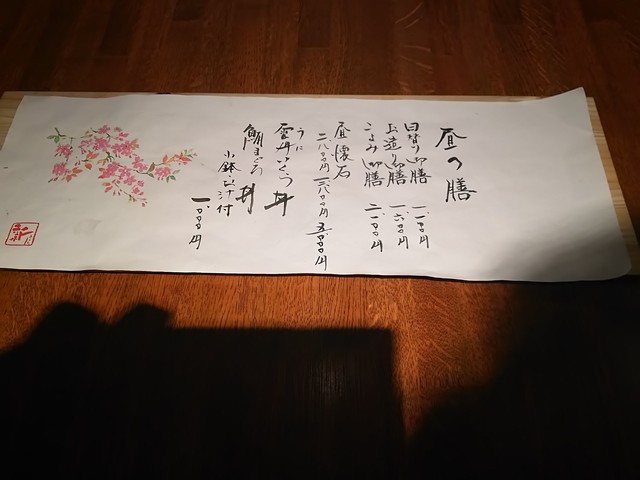 昼の膳
日替り御膳 一一〇〇円
お造り御膳 一六〇〇円
こよみ御膳 二一〇〇円
昼懐石
二八〇〇円 三八〇〇円 五〇〇〇円
うに
雲丹いくら丼
鯛まぐろ丼
小鉢・汁付
一〇〇〇円